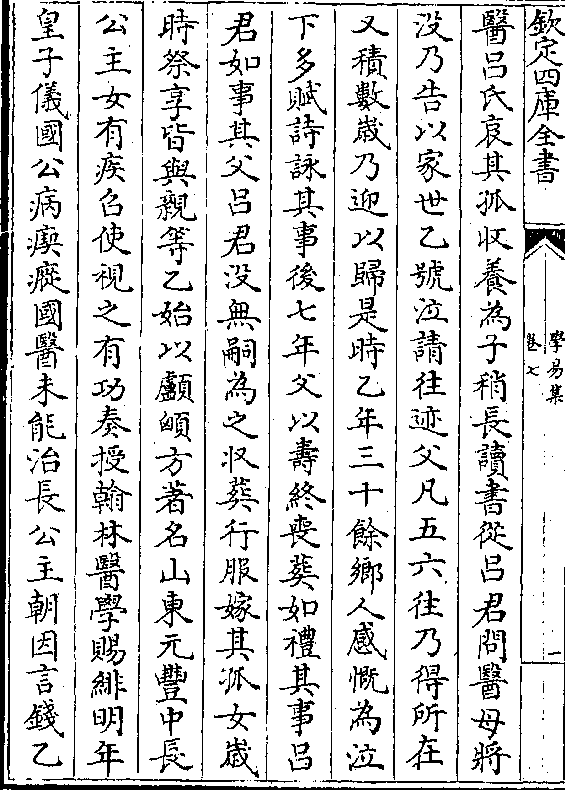 欽定四庫全書
學易集
卷七
一
醫呂氏哀其孤收養為子稍長讀書從呂君問醫母將
沒乃告以家世乙號泣請往迹父凡五六往乃得所在
又積數嵗乃迎以歸是時乙年三十餘鄉人感慨為泣
下多賦詩詠其事後七年父以壽終喪葬如禮其事呂
君如事其父呂君没無嗣為之収葬行服嫁其孤女嵗
時祭享皆與親等乙始以顱䪿方著名山東元豐中長
公主女有疾召使視之有功奏授翰林醫學賜緋明年
皇子儀國公病瘈瘲國醫未能治長公主朝因言錢乙